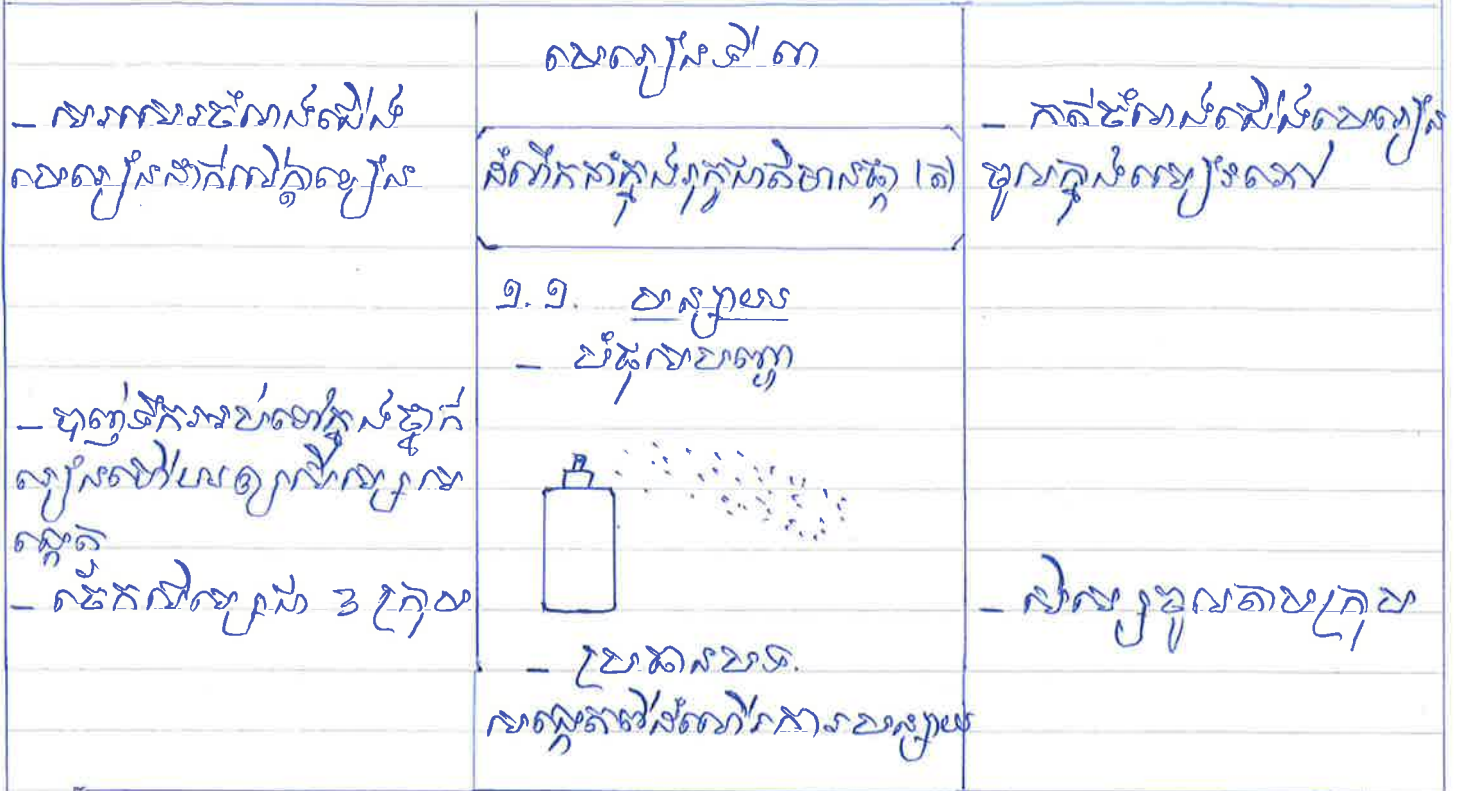 - សរសេរចំណងជើង
មេរៀនដាក់លើក្តារខៀន
- បាញ់ទឹកអប់នៅក្នុងថ្នាក់
រៀនហើយឲ្យសិស្សស
ង្កេត
- ចែកសិស្សជា 3 ក្រុម
មេរៀនទី ៣
ដំណឹកនាំក្នុងរុក្ខជាតិមានផ្កា (ត)
១.១. បន្សាយ
- បំផុសបញ្ហា
- ប្រធានបទ.
សង្កេតពីដំណើរការបន្សាយ
- កត់ចំណងជើងមេរៀន
ចូលក្នុងសៀវភៅ
- សិស្សចូលតាមក្រុម